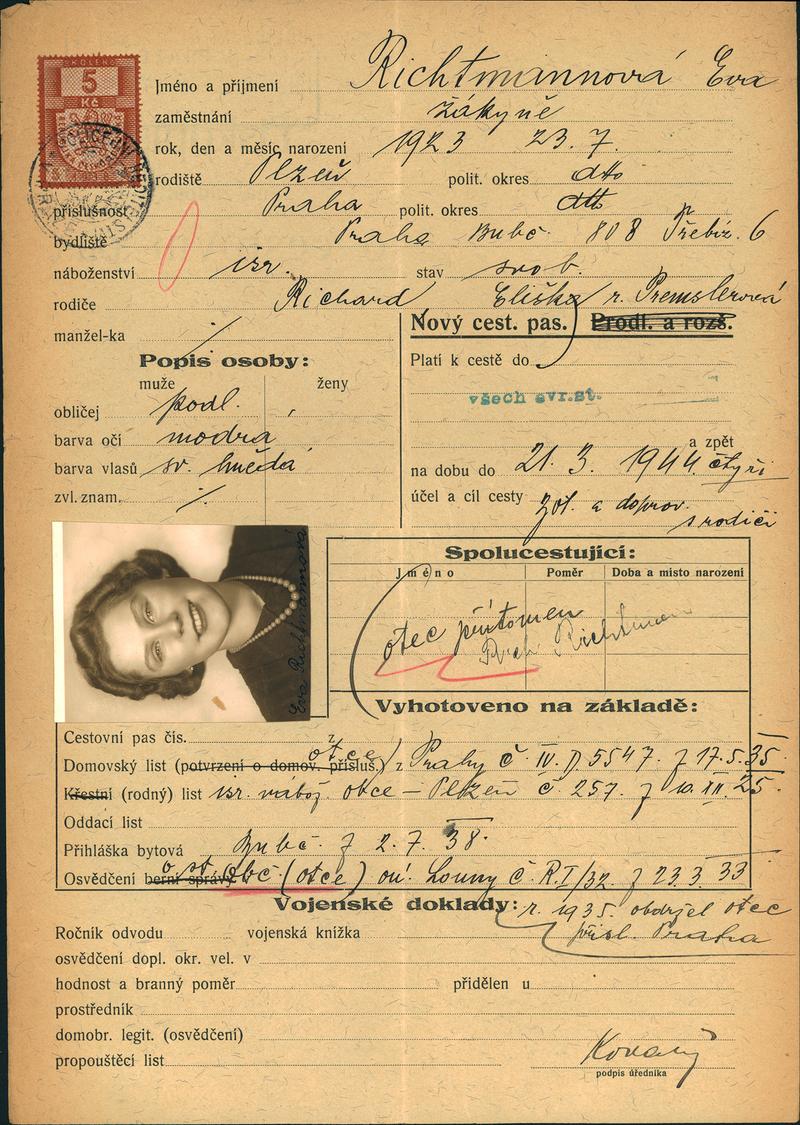 KOLEK
5
Kč
Jméno a příjmení Richtmannová Eva
zaměstnání žákyně
rok, den a měsíc narození 1923 23.7.
rodiště Plzeň polit. okres dto
příslušnost Praha polit. okres dtto
bydliště Praha Bubč. 808 Přebíz. 6
náboženství isr. stav svob.
rodiče Richard Eliška r. Premslerová
manžel-ka ./.
Nový cest. pas. Prodl. a rozš.
Popis osoby:
muže ženy
obličej podl.
barva očí modrá
barva vlasů sv. hnědá
zvl. znam. ./.
Platí k cestě do
všech evr.st.
a zpět
na dobu do 21. 3. 1944 čtyři
účel a cíl cesty zot. a doprov.
s rodiči
Eva Richtmannová
Spolucestující:
Jméno Poměr Doba a místo narození
otec přítomen
Rich Richtmann
Vyhotoveno na základě:
Cestovní pas čís.
Domovský list (potvrzení o domov. příslus.) otce) z Prahy č. IV. D 5547. z 17.5.35
Křestní (rodný) list isr. nábož. otce – Plzeň č. 257. z 10. XII. 25.
Oddací list
Přihláška bytová Bubč. z 2. 7. 38.
Osvědčení berní správy o st. obč. (otce) ou. Louny č. R.I/32. z 23.3.33
Vojenské doklady: r. 1935. obdržel otec
přísl. Praha
Ročník odvodu vojenská knížka
osvědčení dopl. okr. vel. v
hodnost a branný poměr přidělen u
prostředník
domobr. legit. (osvědčení)
propouštěcí list
podpis úředníka